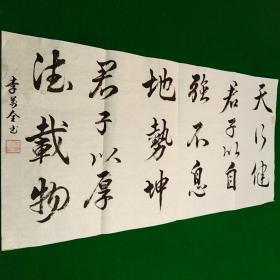 天行健
君子以自
強不息
地勢坤
君子以厚
德載物
李萬全书